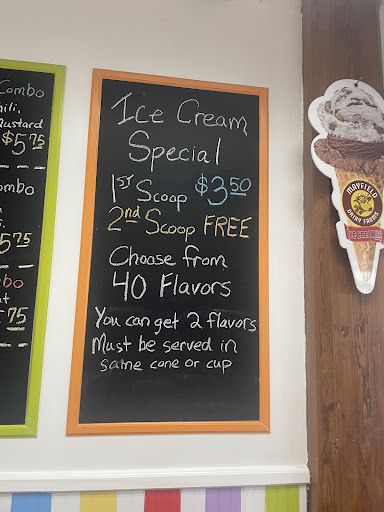 Combo
hili,
Mustard
$5.75
ombo
575
bo
at
75
Ice Cream
Special
1st Scoop $3.50
2nd Scoop FREE
Choose from
40 Flavors
You can get 2 flavors
Must be served in
same cone or cup
MAYFIELD
DAIRY FARMS
ICE CREAM